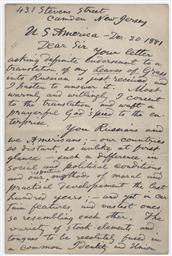 431 Stevens Street
Camden New Jersey
U S America - Dec 20 1881
Dear Sir Your letter
asking definite endorsement to a
translation of my Leaves of Grass
into Russian is just received
I hasten to answer it. Most
warmly and willingly I consent
to the translation, and waft a
prayerful God speed to the en-
terprise.
You Russians and
we Americans; - our countries so
distant, so unlike at first
glance - such a difference in
social and political conditions
and our respective methods of moral and
practical development the last
hundred years; - and yet in cer-
tain features, and vastest ones
so resembling each other. The
variety of stock-elements and
tongues to be resolutely fused in
a common Identity and Union